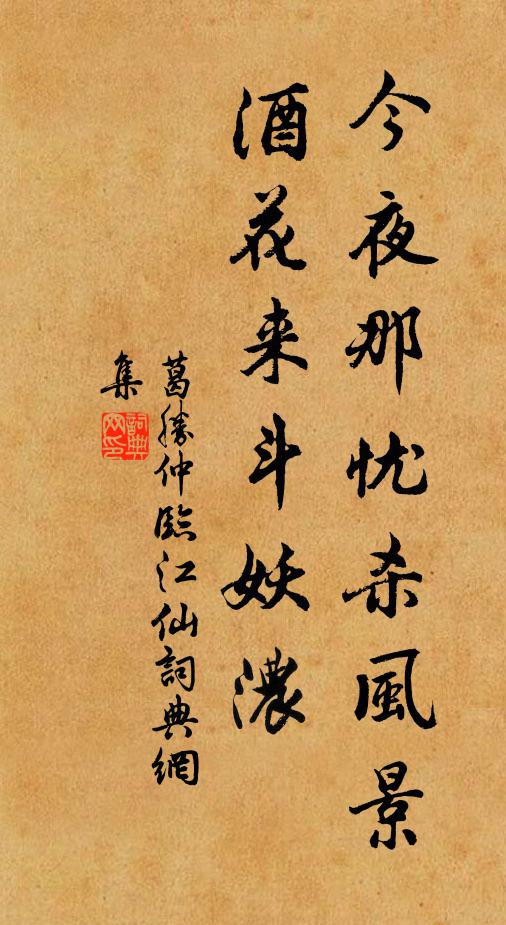 今夜那忧杀風景
酒花来斗妖濃
葛勝仲臨江仙詞典網
集
詞典网印